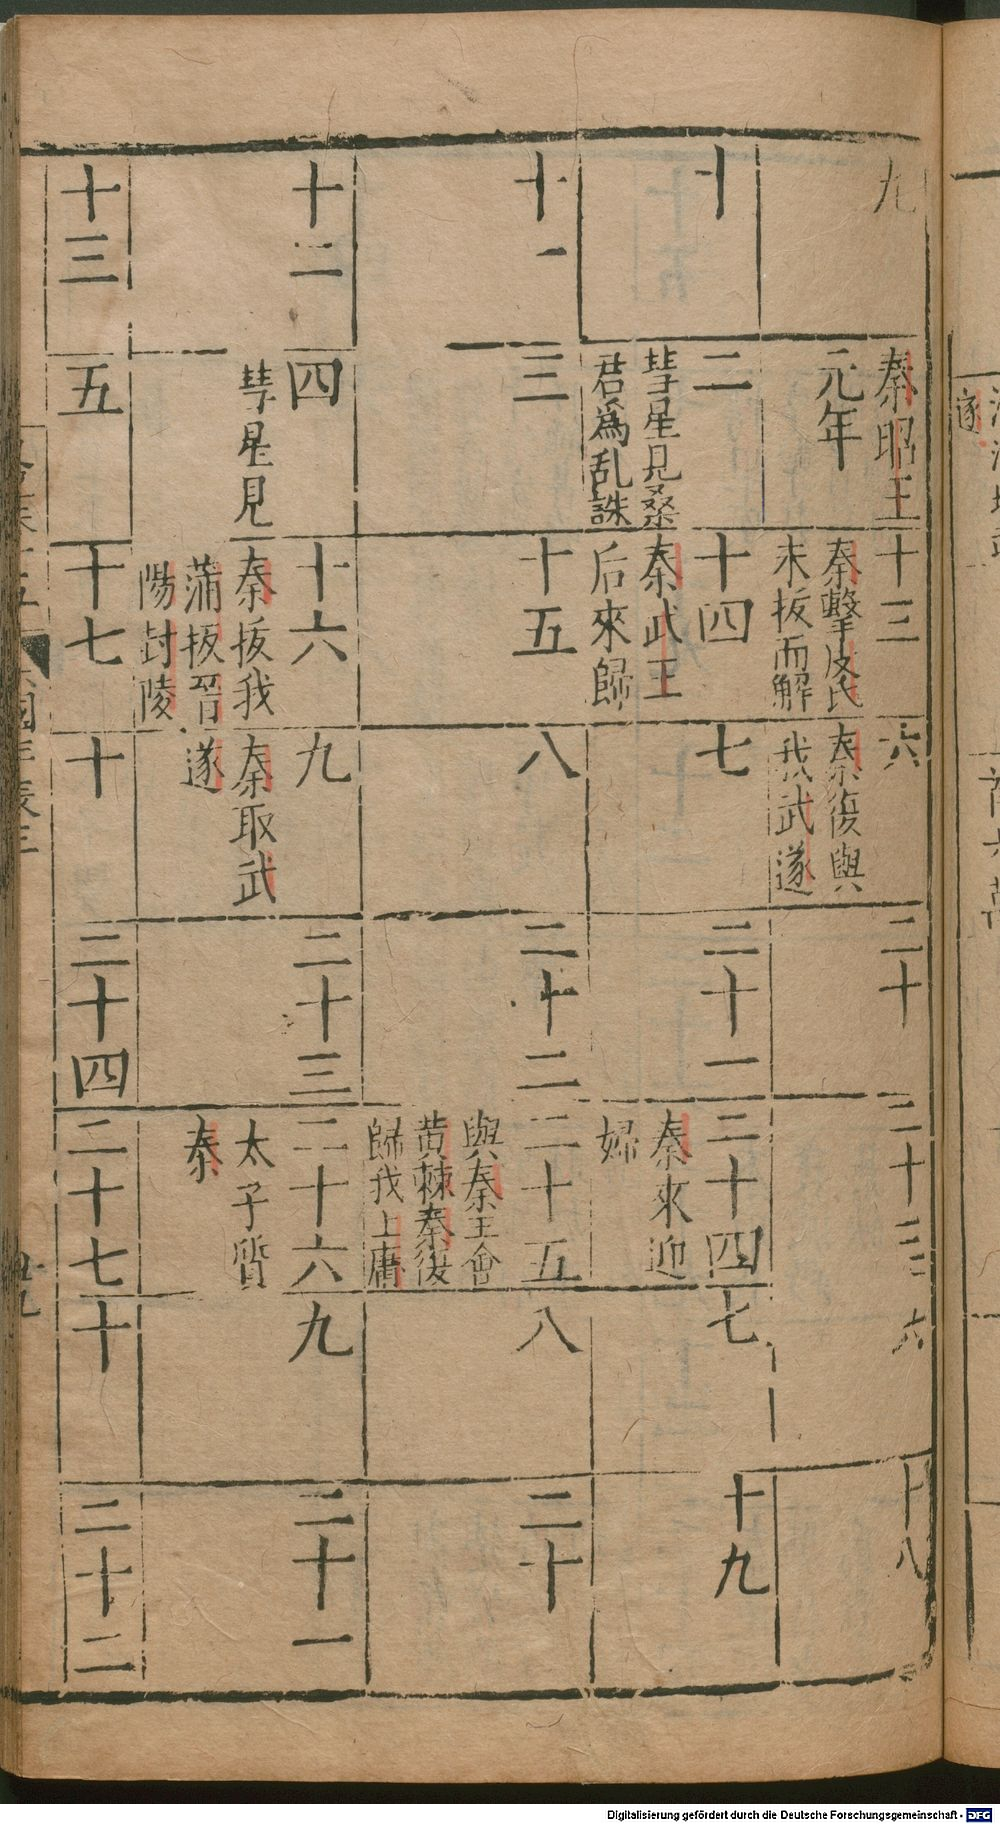 九
秦昭王
元年
十三
秦擊皮氏
未拔而解
六
秦復與
我武遂
二十
二十三
六
十八
十
二
彗星見桑
君爲乱誅
十四
秦武王
后來歸
七
二十一
二十四
秦來迎
婦
七
十九
十一
三
十五
八
二十二
二十五
與秦王會
黄棘秦復
歸我上庸
八
二十
十二
四
彗星見
十六
秦拔我
蒲坂晋
陽封陵
九
秦取武
遂
二十三
二十六
太子質
秦
九
二十一
十三
五
十七
十
二十四
二十七
十
二十二
Digitalisierung gefördert durch die Deutsche Forschungsgemeinschaft - DFG